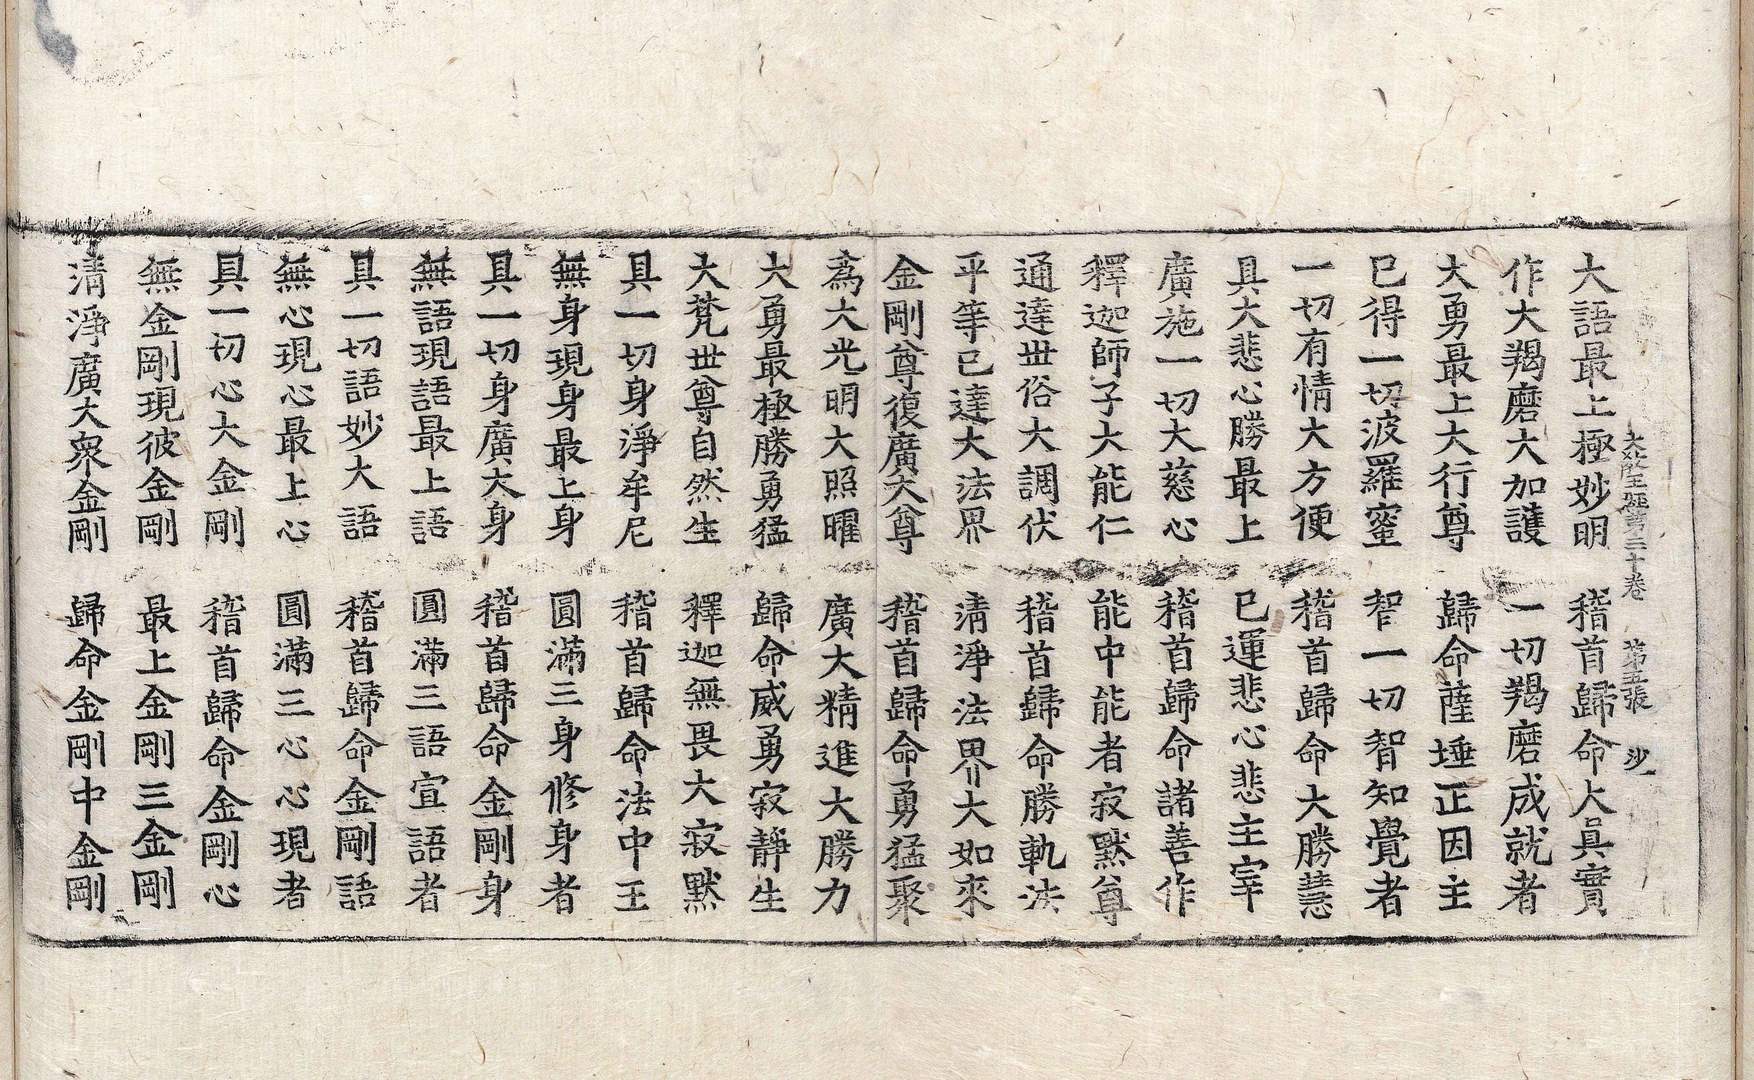 大教王經第三十卷　第五張　沙
大語最上極妙明　稽首歸命大眞實
作大羯磨大加護　一切羯磨成就者
大勇最上大行尊　歸命薩埵正因主
已得一切波羅蜜　智一切智知覺者
一切有情大方便　稽首歸命大勝慧
具大悲心勝最上　已運悲心悲主宰
廣施一切大慈心　稽首歸命諸善作
釋迦師子大能仁　能中能者寂默尊
通達世俗大調伏　稽首歸命勝軌法
平等已達大法界　清淨法界大如來
金剛尊復廣大尊　稽首歸命勇猛聚
爲大光明大照曜　廣大精進大勝力
大勇最極勝勇猛　歸命威勇寂靜生
大梵世尊自然生　釋迦無畏大寂默
具一切身淨牟尼　稽首歸命法中王
無身現身最上身　圓滿三身修身者
具一切身廣大身　稽首歸命金剛身
無語現語最上語　圓滿三語宣語者
具一切語妙大語　稽首歸命金剛語
無心現心最上心　圓滿三心心現者
具一切心大金剛　稽首歸命金剛心
無金剛現彼金剛　最上金剛三金剛
清淨廣大衆金剛　歸命金剛中金剛